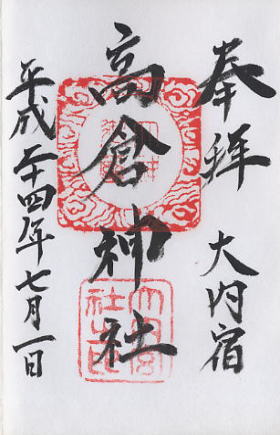 奉拜 大内宿
高倉神社
平成二十四年七月一日